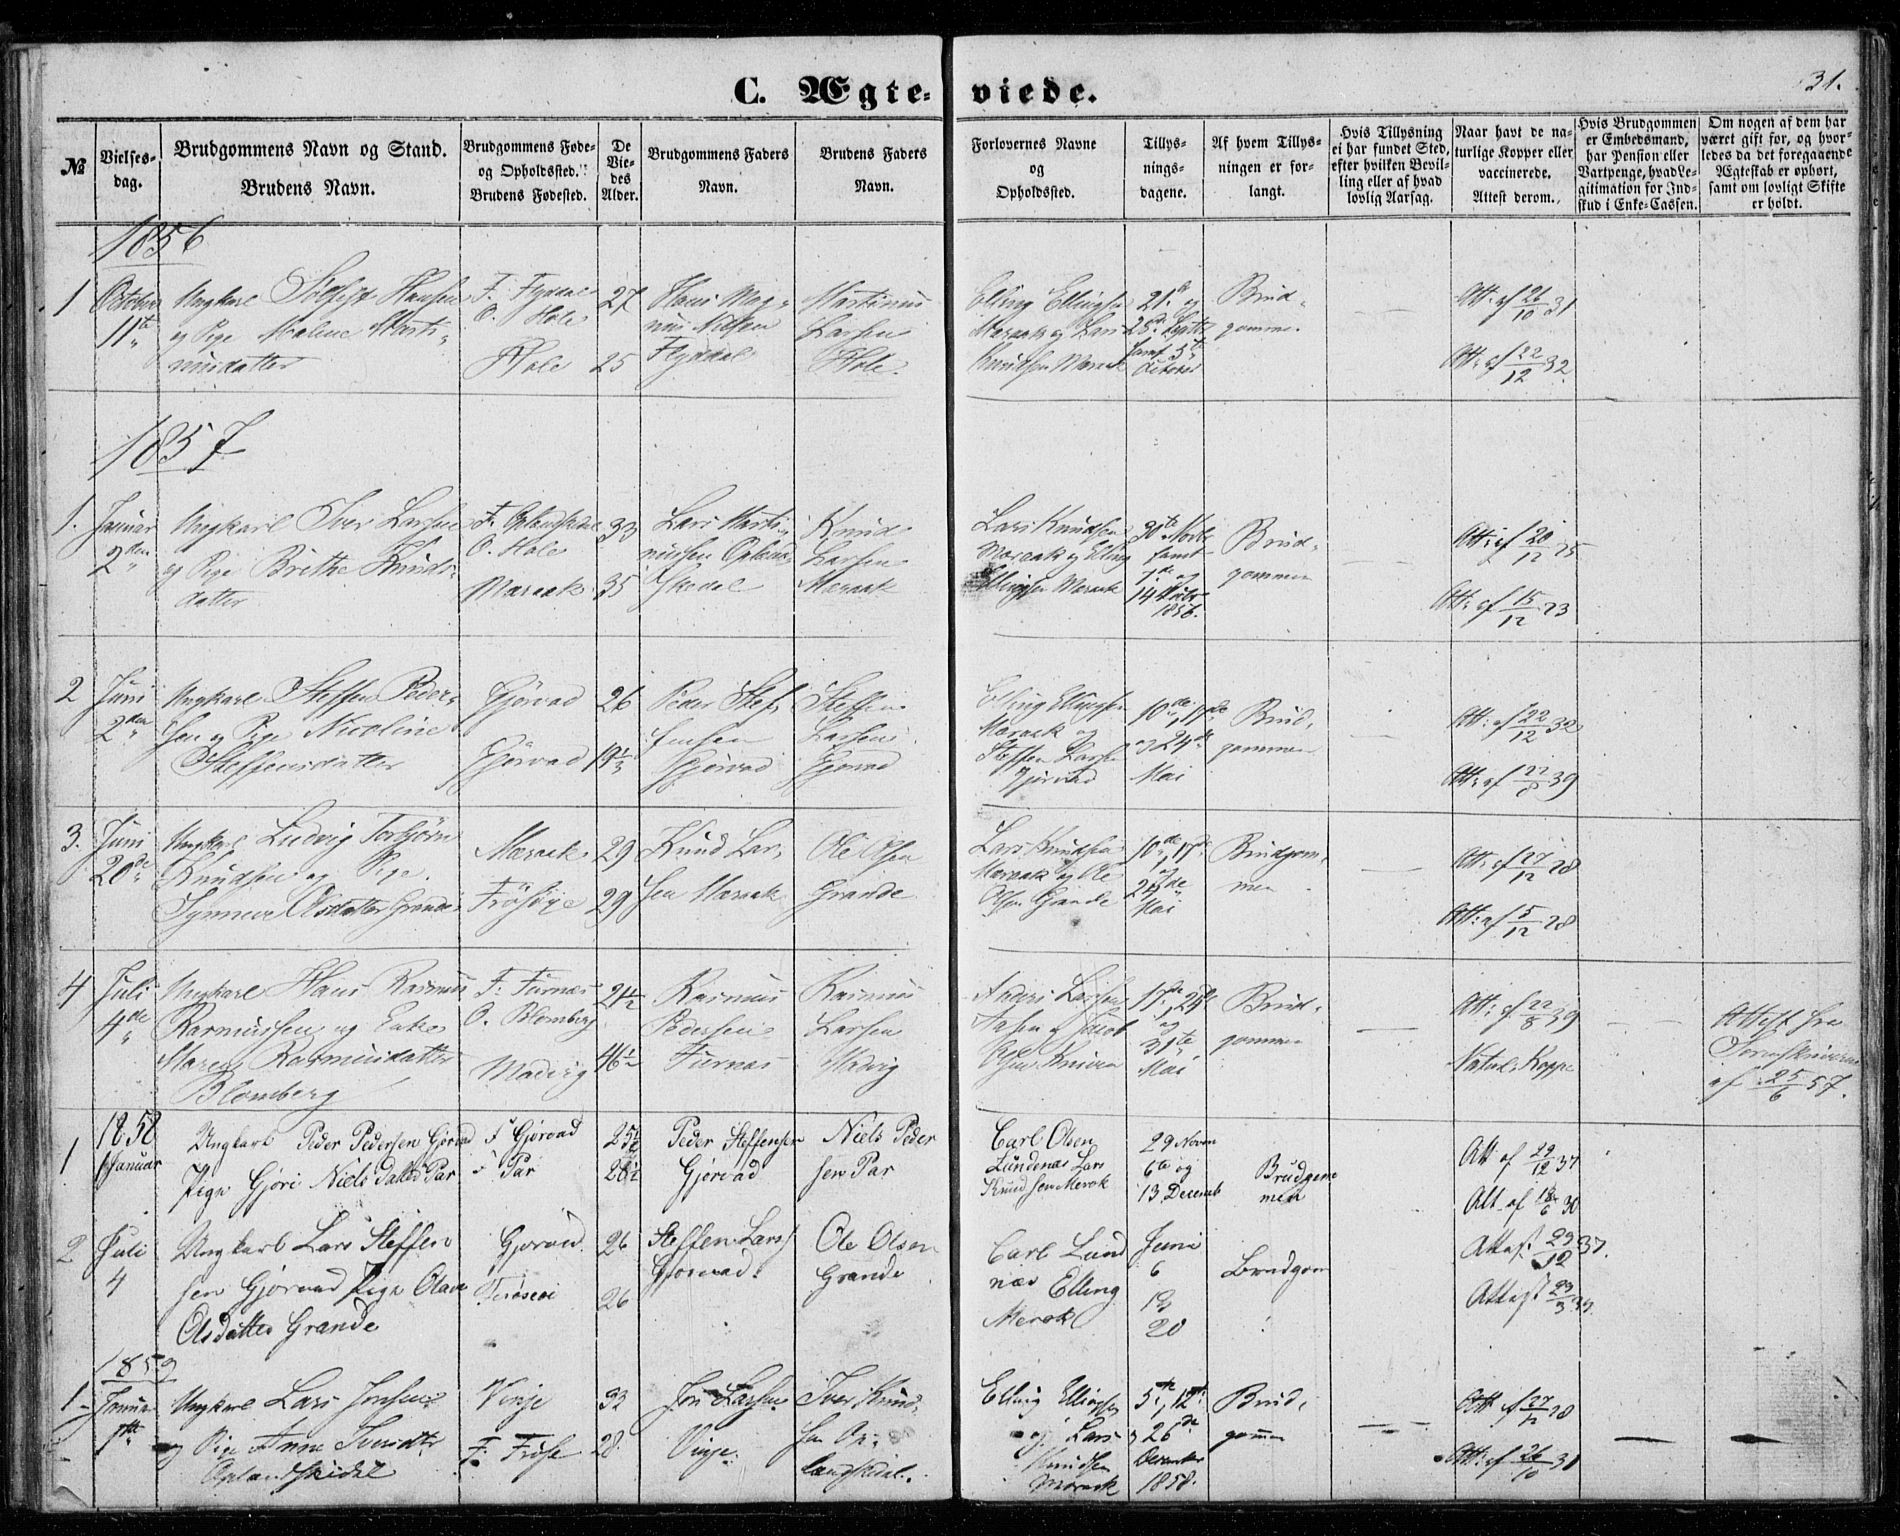 C. Ægte- viede.
31.
№
Vielses-
dag.
Brudgommens Navn og Stand.
Brudens Navn.
Brudgommens Føde-
og Opholdssted.
Brudens Fødested.
De
Vie-
des
Alder.
Brudgommens Faders
Navn.
Brudens Faders
Navn.
Forlovernes Navne
og
Opholdssted.
Tillys-
nings-
dagene.
Af hvem Tillys-
ningen er for-
langt.
Hvis Tillysning
ei har fundet Sted,
efter hvilken Bevil-
ling eller af hvad
lovlig Aarsag.
Naar havt de na-
turlige Kopper eller
vaccinerede.
Attest derom.
Hvis Brudgommen
er Embedsmand,
har Pension eller
Vartpenge, hvad Le-
gitimation for Ind-
skud i Enke-Cassen.
Om nogen af dem har
været gift for, og hvor-
ledes da det foregaaende
Ægteskab er ophørt,
samt om lovligt Skifte
er holdt.
1856
1
October
11te
Ungkarl Hansen
og Pige Malene Marti-
nusdatter
F. Flydal
O. Hole
Hole
27
25
Hans Mag-
nus Nilsen
Flydal
Martinus
Larsen
Hole
Elling Ellingsen
Maraak og Lars
Knudsen Maraak
21de og
28de Septbr
samt 5te
October
Brud-
gommen
Att: af 26/10 31
Att: af 22/12 32
1857
1.
Januar
2den
Ungkarl Iver Larsen
og Pige Brithe Knuds-
datter
F. Oplandskedal
O. Hole
Maraak
33
35
Lars Marti-
nussen Oplan-
skedal
Knud
Larsen
Maraak
Lars Knudsen
Maraak og Elling
Ellingsen Maraak
30te Novbr
samt
7de og
14de
1856.
Brud-
gommen
Att: af 20/12 25
Att: af 15/12 23
2
Juni
2den
Ungkarl Steffen Peder-
sen og Pige Nicoline
Steffensdatter
Gjørvad
Gjørvad
26
19 1/3
Peder Stef-
fensen
Gjørvad
Steffen
Larsen
Gjørvad
Elling Ellingsen
Maraak og
Steffen Larsen
Gjørvad
10de, 17de
og 24de
Mai
Brud-
gommen
Att: af 22/12 32
Att: af 22/8 39
3.
Juni
20de
Ungkarl Ludvig Torbjørn
Knudsen og Pige
Synneve Olsdatter Grande
Maraak
Frøsdye
29
29
Knud Lar-
sen Maraak
Ole Olsen
Grande
Lars Knudsen
Maraak og Ole
Olsen Grande
10de, 17de
og
24de
Mai
Brudgom-
men
Att: af 27/12 28
Att: af 5/12 28
4
Juli
4de
Ungkarl Hans Rasmus
Rasmussen og Enke
Maren Rasmusdatter
Blomberg
F. Furnæs
O. Blomberg
Madvig
21 1/2
46 1/2
Rasmus
Pedersen
Furnæs
Rasmus
Larsen
Madvig
Anders Larsen
17de, 24de
og
31te
Mai
Brud-
gommen
Att: af 22/8 39
Naturl. Koppe
Attest fra
Sorenskriveren
af 25/6 57.
1858
1
Januar
Ungkarl Peder Pedersen Gjørvad
Pige Gjøri Niels datter Par
F Gjørvad
F Par
25 1/2
28 1/2
Peder Steffensen
Gjørvad
Niels Peder
sen Par
Carl Olsen
Lundenæs Lars
Knudsen Merok
29 Novem
6te og
13 Decemb
Brudgom
men
Att af 29/12 37
Att af 18/6 30
2
Juli
4
Ungkarl Lars Steffen
sen Gjørvad Pige Olave
Olsdatter Grande
Gjørvad
26
26
Steffen Lars
Gjørvad
Ole Olsen
Grande
Carl Lund
næs Elling
Merok
Juni
6
13
20
Brudgom
Attest 29/12 37.
Attest 23/3
1859
1
Januar
1ste
Ungkarl Lars Jonsen
og Pige Anne Iversdtr
Oplandskedal
Vinje
F. Frøse
32
28
Jon Larsen
Vinje
Iver Knud-
sen Op-
landskedal.
Elling Ellingsen
og Lars
Knudsen
Maraak
5te, 12te
og 26de
December
1858.
Brud-
gommen
Att: af 27/12 28
Att: af 26/10 31